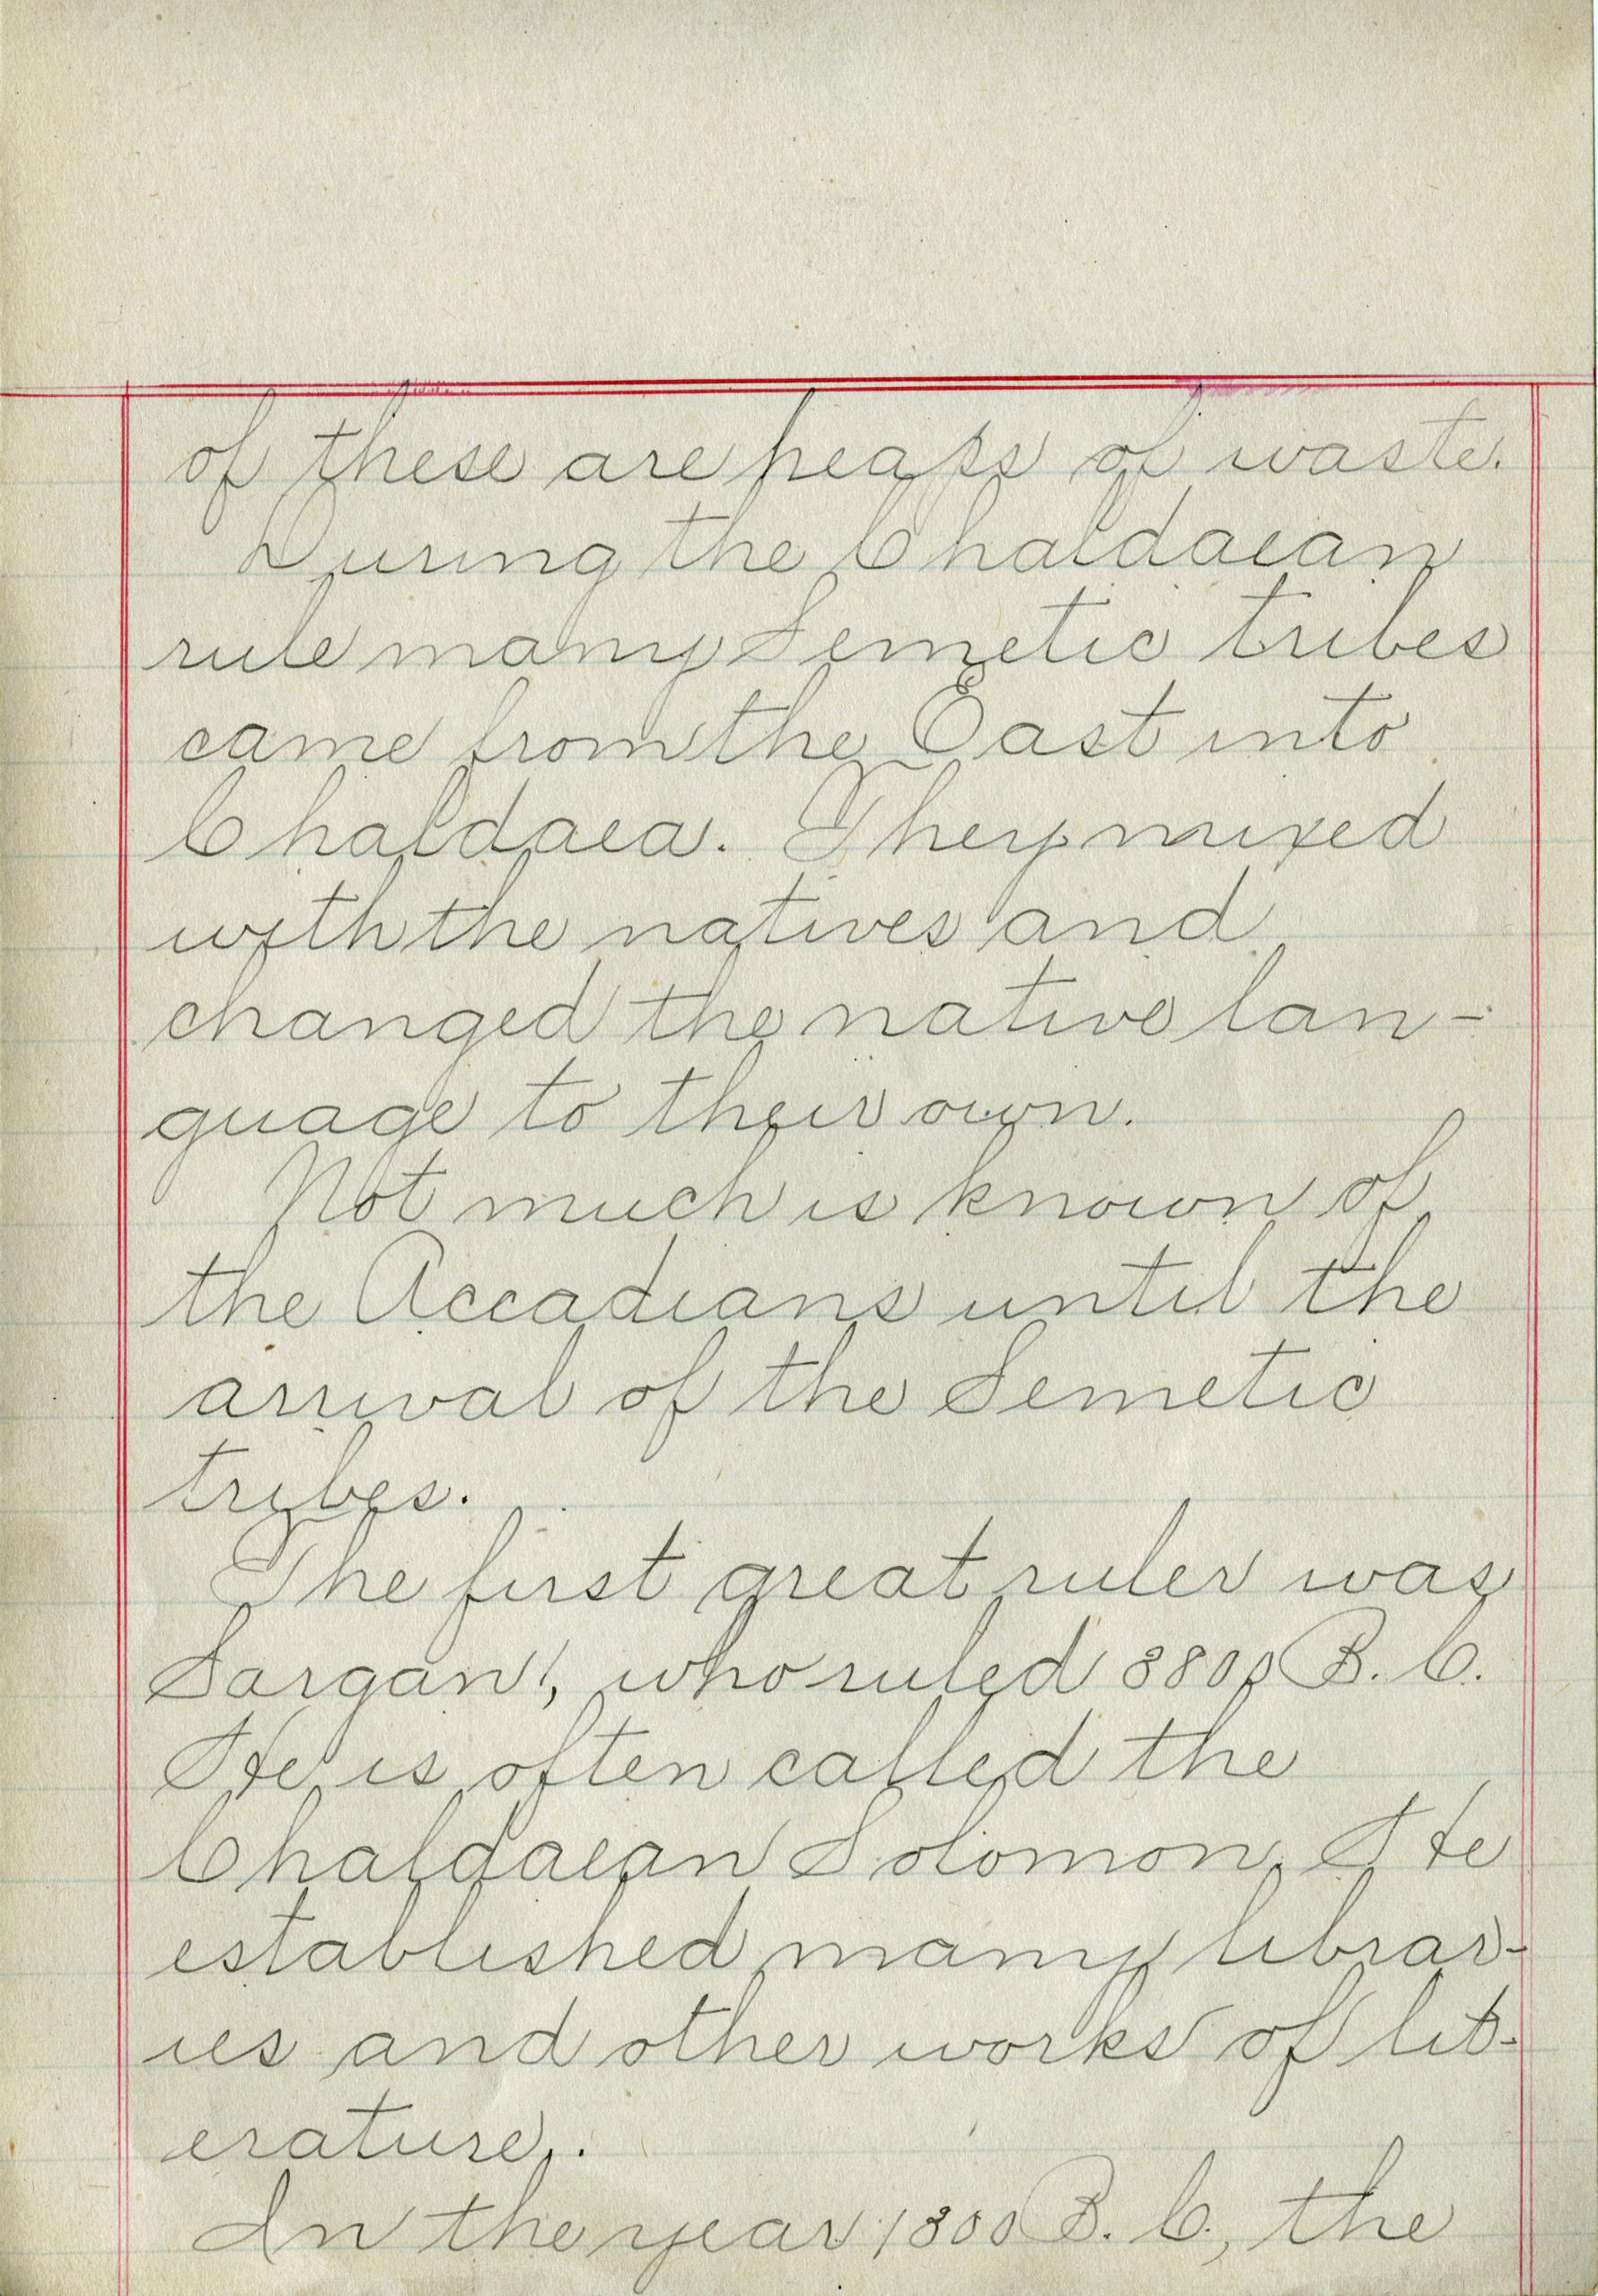 of these are heaps of waste.
During the Chaldaean
rule many Semetic tribes
came from the East into
Chaldaea. They mixed
with the natives and
changed the native lan-
guage to their own.
Not much is known of
the Accadians until the
arrival of the Semetic
tribes.
The first great ruler was
Sargan I, who ruled 3800 B. C.
He is often called the
Chaldaean Solomon. He
established many librar-
ies and other works of lit-
erature.
In the year 1300 B. C., the